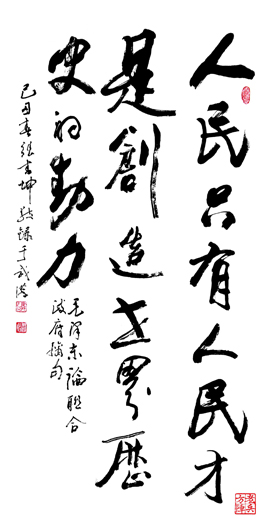 人民只有人民才
是創造世界歷
史的動力
毛澤東論聯合
政府摘句
己丑春張吉坤敬錄于武漢